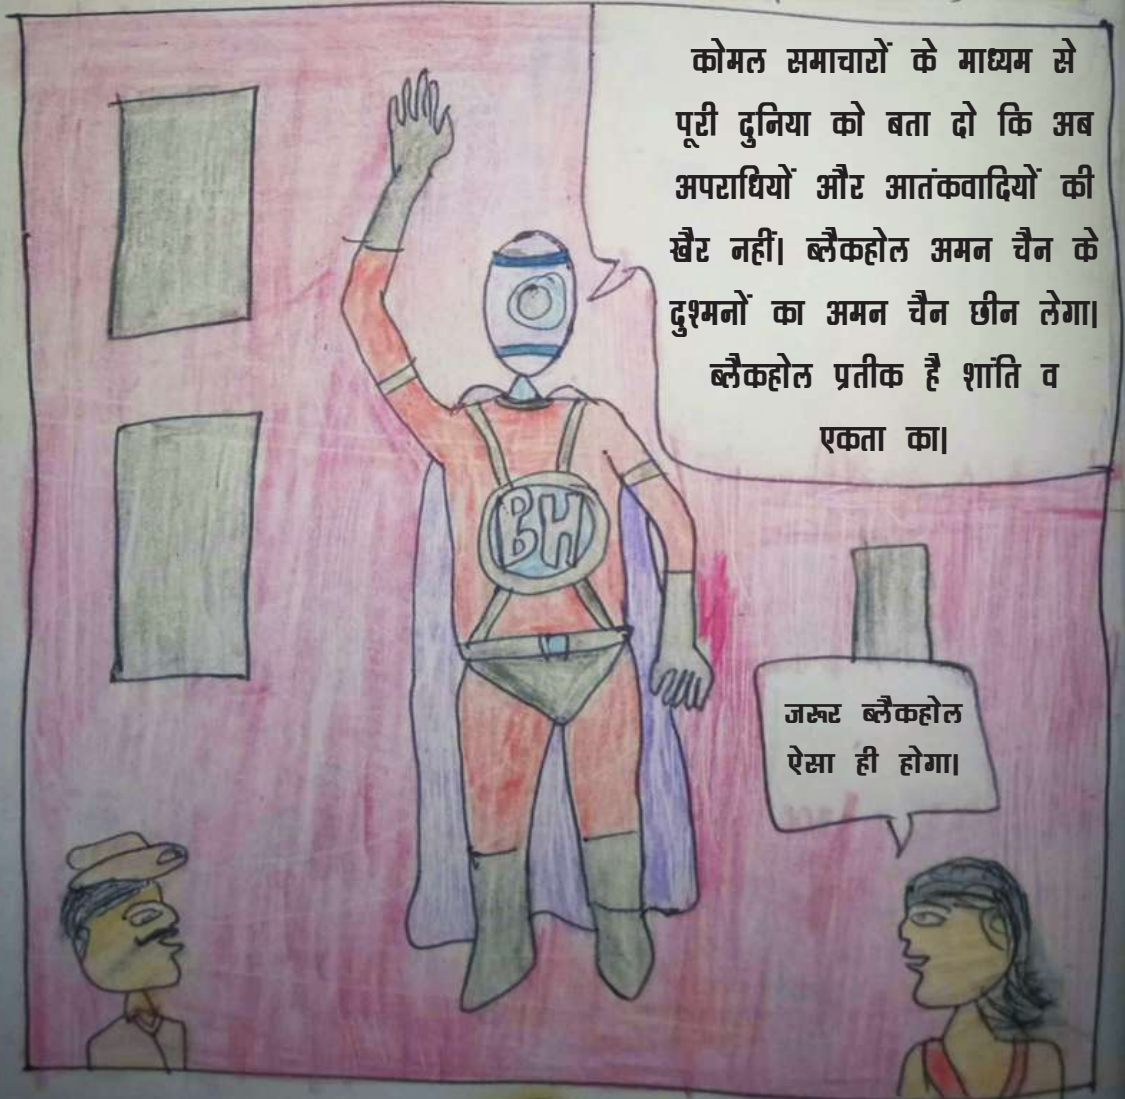 कोमल समाचारों के माध्यम से
पूरी दुनिया को बता दो कि अब
अपराधियों और आतंकवादियों की
खैर नहीं। ब्लैकहोल अमन चैन के
दुश्मनों का अमन चैन छीन लेगा।
ब्लैकहोल प्रतीक है शांति व
एकता का।
BH
जरूर ब्लैकहोल
ऐसा ही होगा।